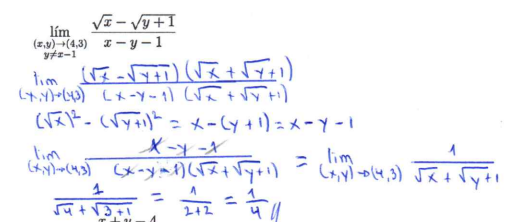 lím (x,y)→(4,3) y≠x−1 √x − √y+1 / x − y − 1
lim (x,y)→(4,3) (√x − √y+1) (√x + √y+1) / (x−y−1) (√x + √y+1)
(√x)² − (√y+1)² = x − (y+1) = x − y − 1
lim (x,y)→(4,3) x−y−1 / (x−y−1)(√x+√y+1) = lim (x,y)→(4,3) 1 / √x + √y+1
1 / √4 + √3+1 = 1 / 2+2 = 1 / 4 //